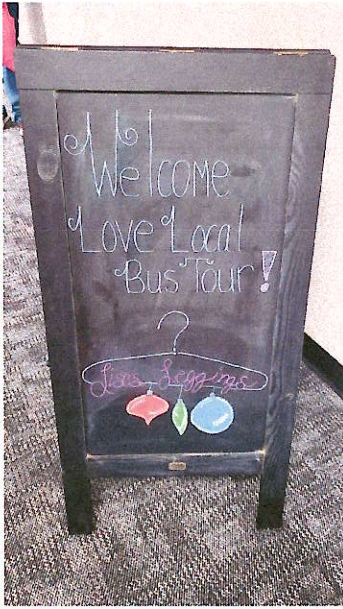 Welcome
Love Local
Bus Tour!
Lisas Leggings